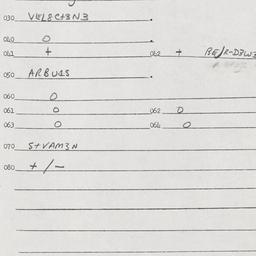 030 VELECT3N3 .
040 O
041 + 042 +
050 ARBU1S .
060 O
061 O 062 O
063 O 064 O
070 STVAM3N
080 + / -